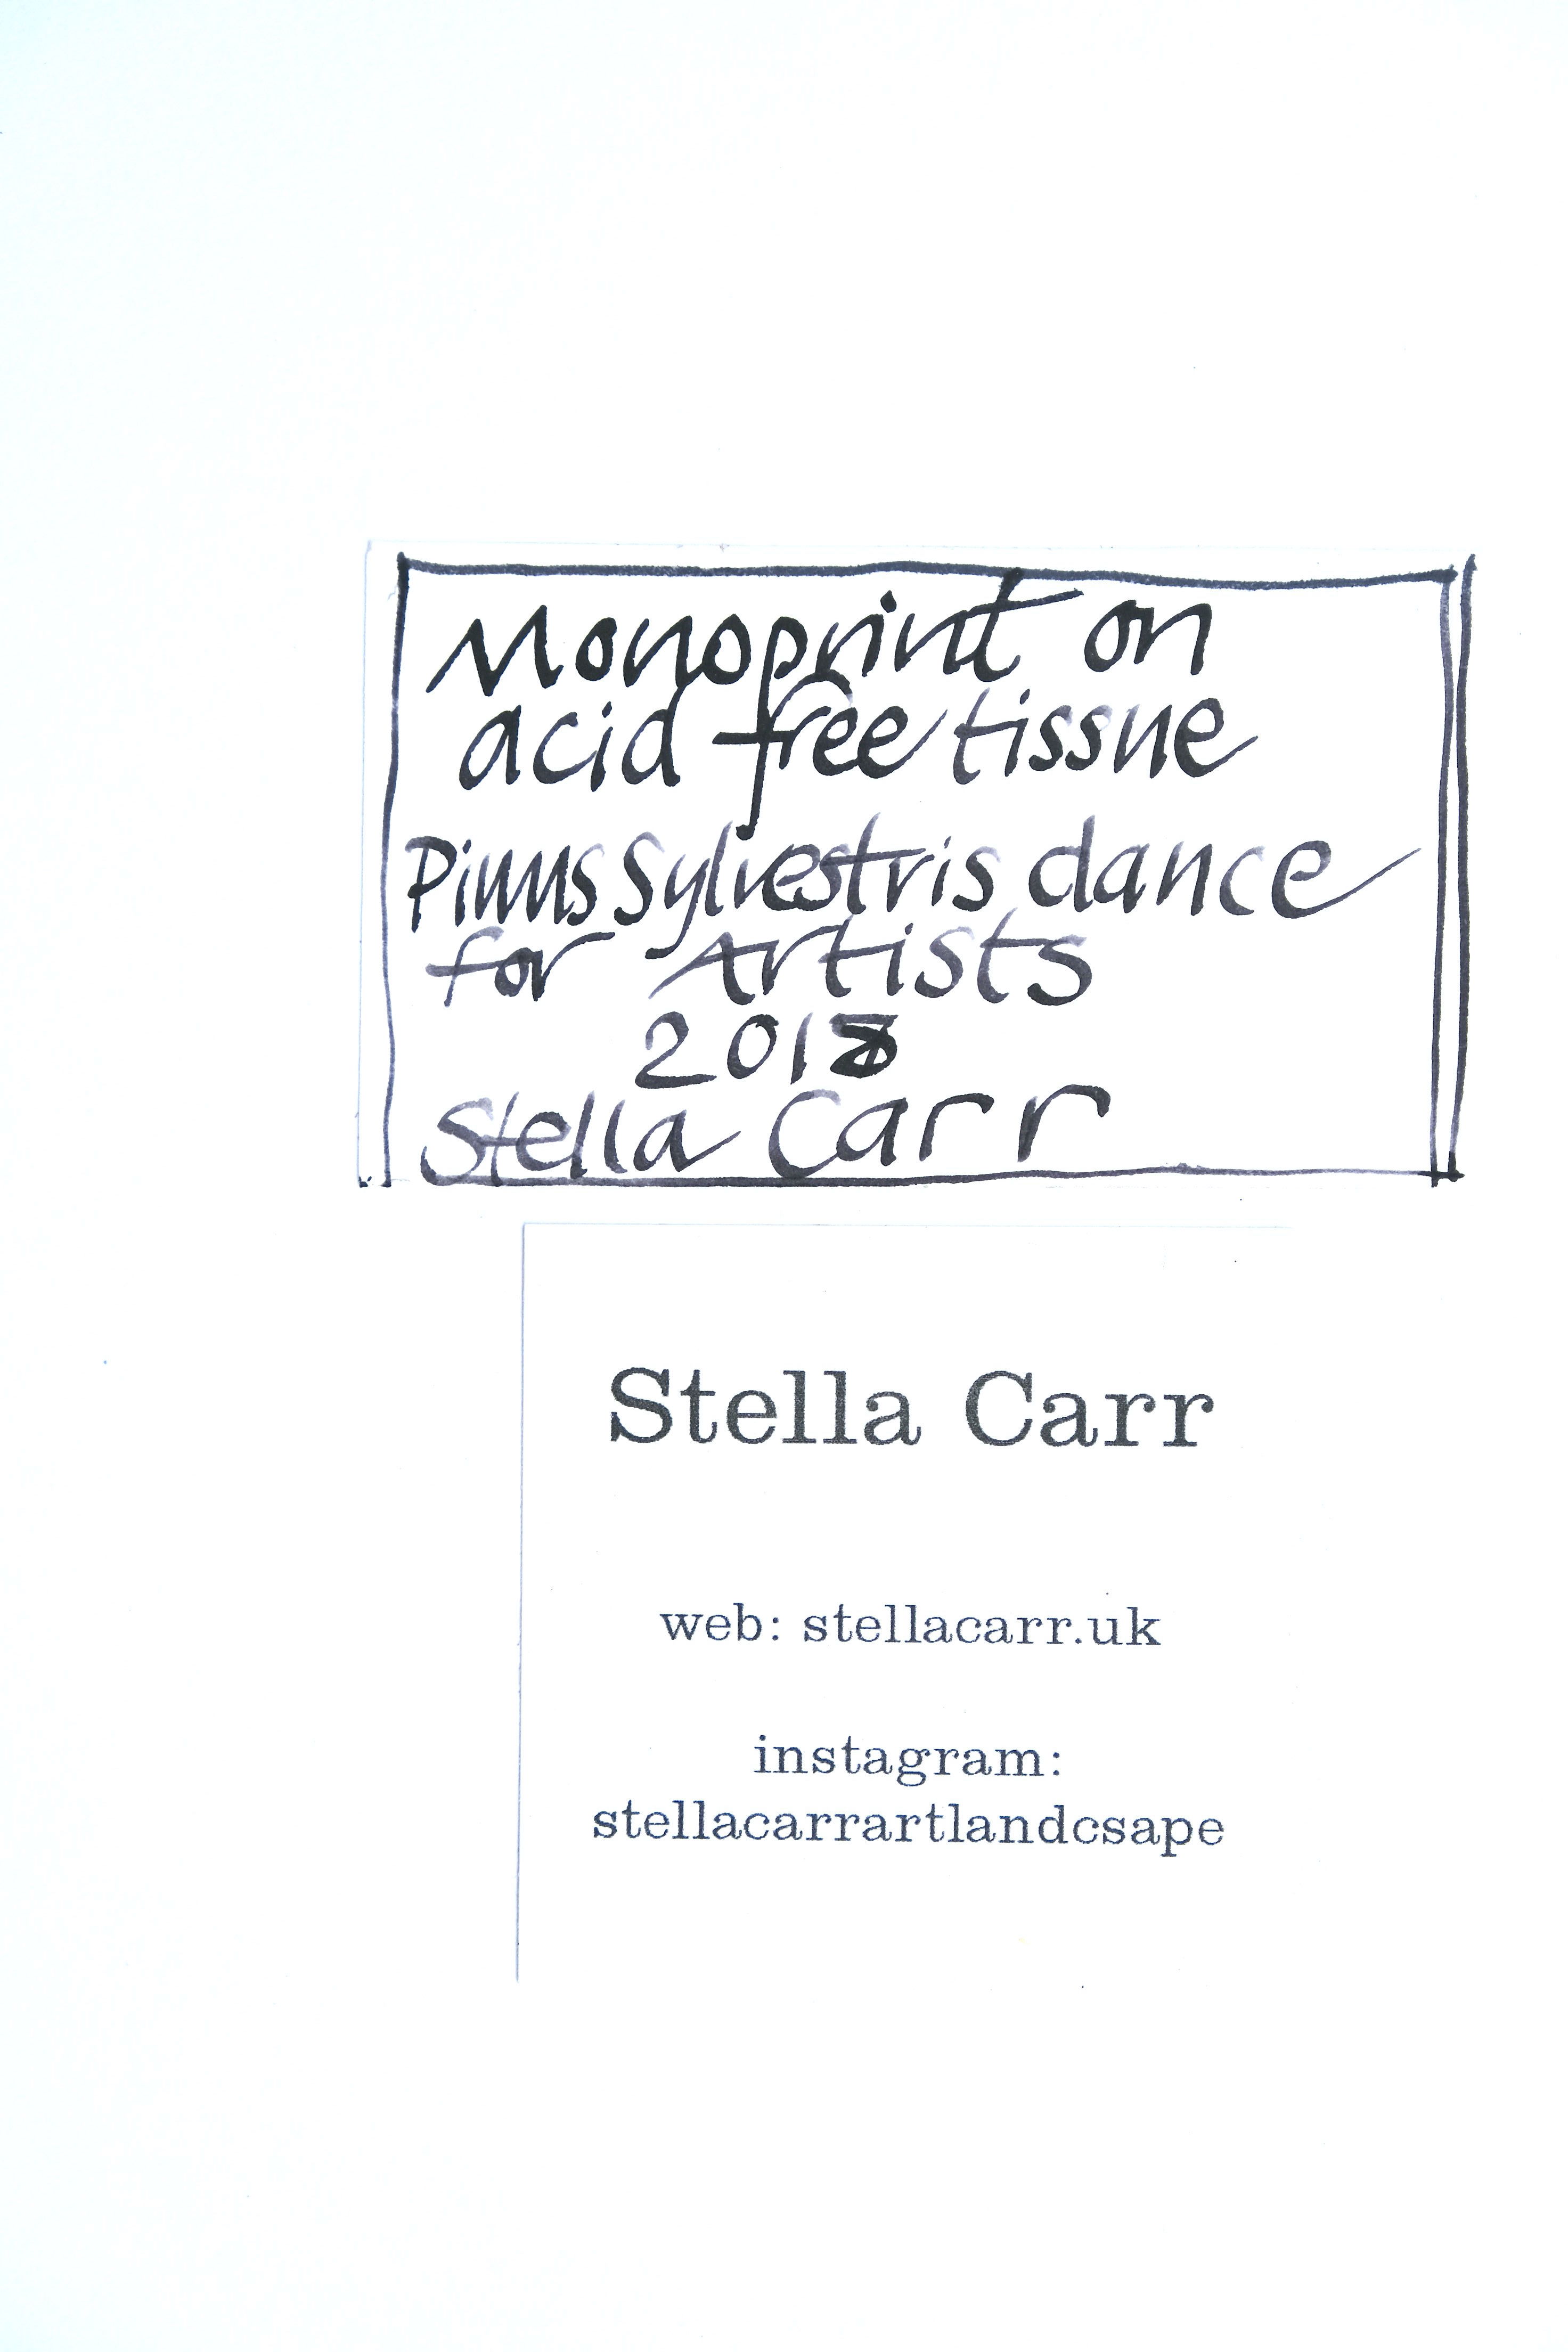 Monoprint on
acid free tissue
Pinus Sylvestris dance
for Artists
2018
Stella Carr
Stella Carr
web: stellacarr.uk
instagram:
stellacarrartlandcsape